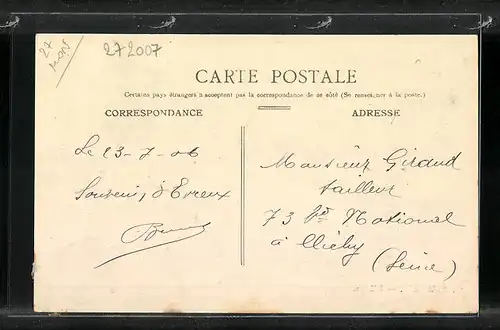 27
272007
CARTE POSTALE
Certains pays étrangers n'acceptent pas la correspondance de ce côté (Se renseigner à la poste.)
CORRESPONDANCE
ADRESSE
Le 23-7-06
Souvenir d'Evreux
Monsieur Giraud
tailleur
73 Bd National
à Clichy
(Seine)